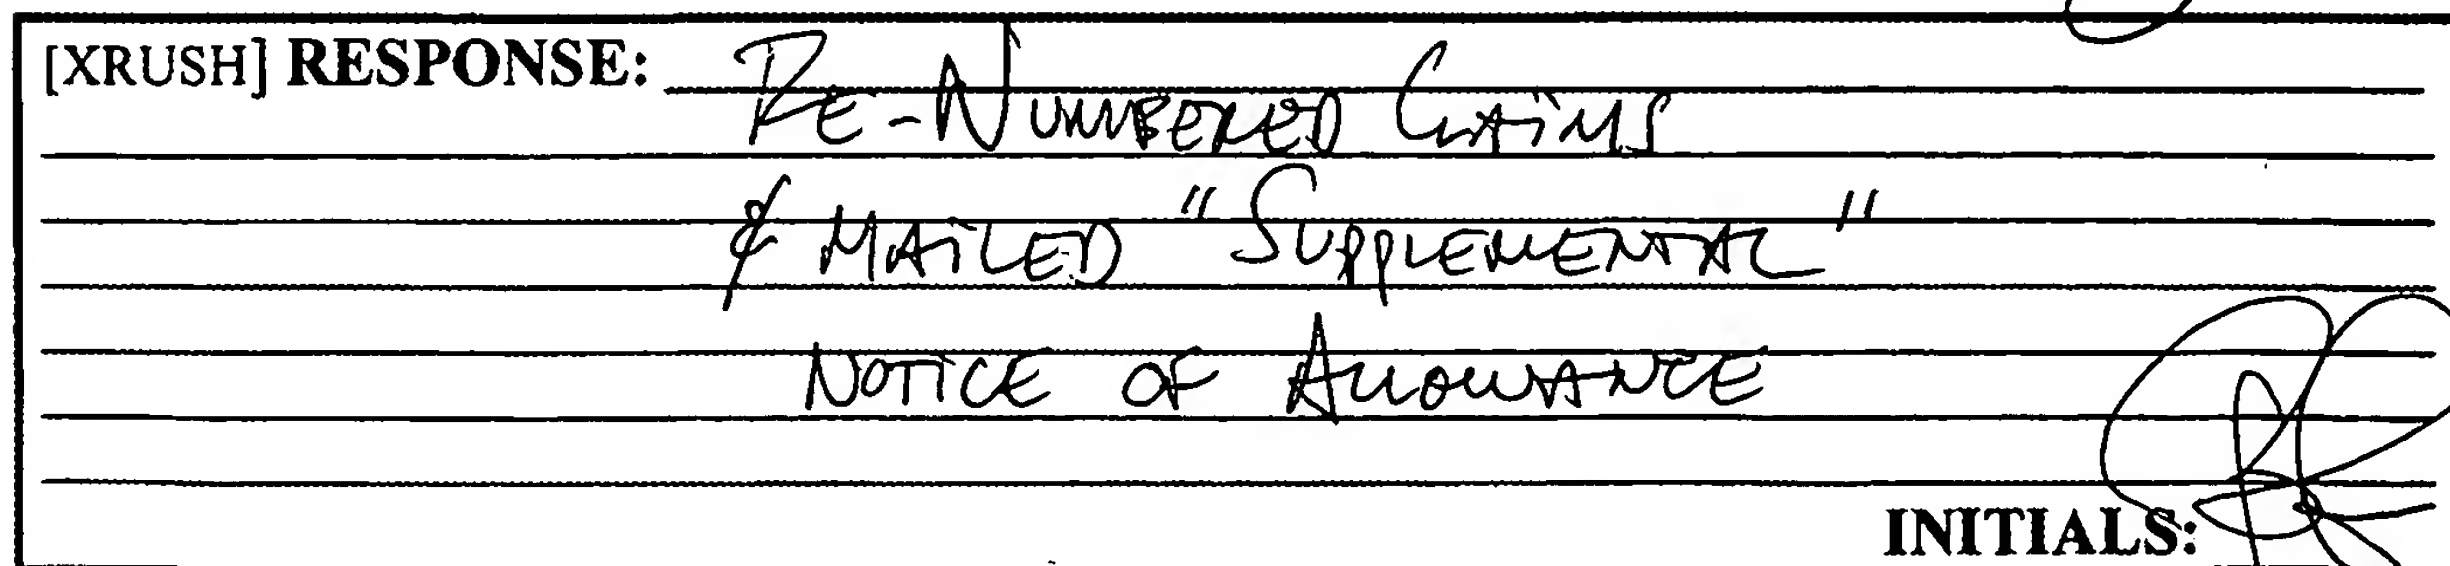 [XRUSH] RESPONSE: Re-Numbered Claims
& Mailed "Supplemental"
Notice of Allowance
INITIALS: